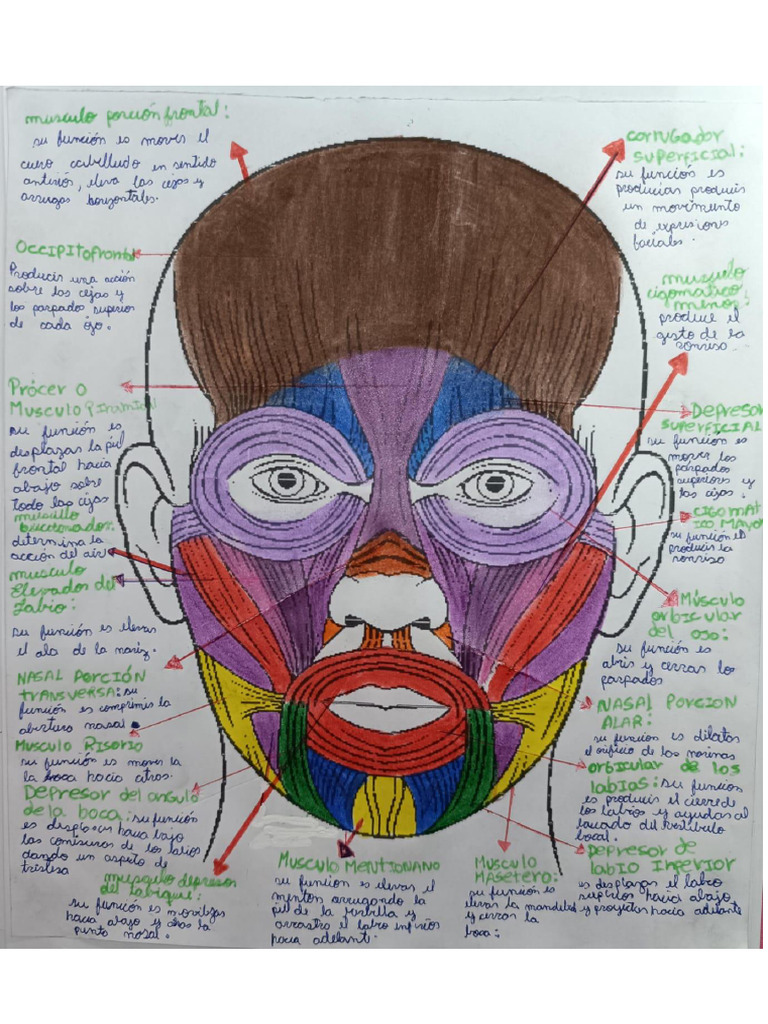 musculo porción frontal:
su función es mover el
cuero cabelludo en sentido
anterior, eleva las cejas y
arrugas horizontales.
Occipitofrontal
Producir una acción
sobre las cejas y
los parpados superior
de cada ojo.
Prócer o
Musculo Piramidal
su función es
desplazar la piel
frontal hacia
abajo sobre
todo las cejas
musculo
buccionador:
determina la
acción del aire
musculo
Elevador del
Labio:
su función es elevar
el ala de la nariz.
NASAL PORCIÓN
TRANSVERSA: su
función es comprimir la
abertura nasal
Musculo Risorio
su función es mover la
la boca hacia atras.
Depresor del angulo
de la boca: su función
es desplazar hacia bajo
las comisuras de los labios
dando un aspeto de
tristesa
musculo depresor
del tabique:
su función es movilizar
hacia abajo y atras la
punta nasal.
Musculo Mentionano
su funcion es elevar el
menton arrugando la
piel de la barbilla y
arrastra el labio inferior
hacia adelante.
Musculo
Masetero:
su función es
elevar la mandibula
y cerrar la
boca:
corrugador
superficial:
su función es
producir
un movimiento
de expresiones
faciales.
musculo
cigomatico
menor:
produce el
gesto de la
sonrisa
Depresor
superficial
su funcion es
mover los
parpados
superiores y
las cejas.
CIGOMAT
ICO Mayor
su función es
producir la
sonrisa
Músculo
orbicular
del oso:
su función es
abrir y cerrar los
parpados
NASAL PORCION
ALAR:
su función es dilatar
el orificio de las narinas
orbicular de los
labios: su función
es producir el cierre de
los labios y ayudar al
lavado del vestibulo
bucal.
Depresor de
labio Inferior
es desplazar el labro
hacia abajo
y proyectar hacia adelante